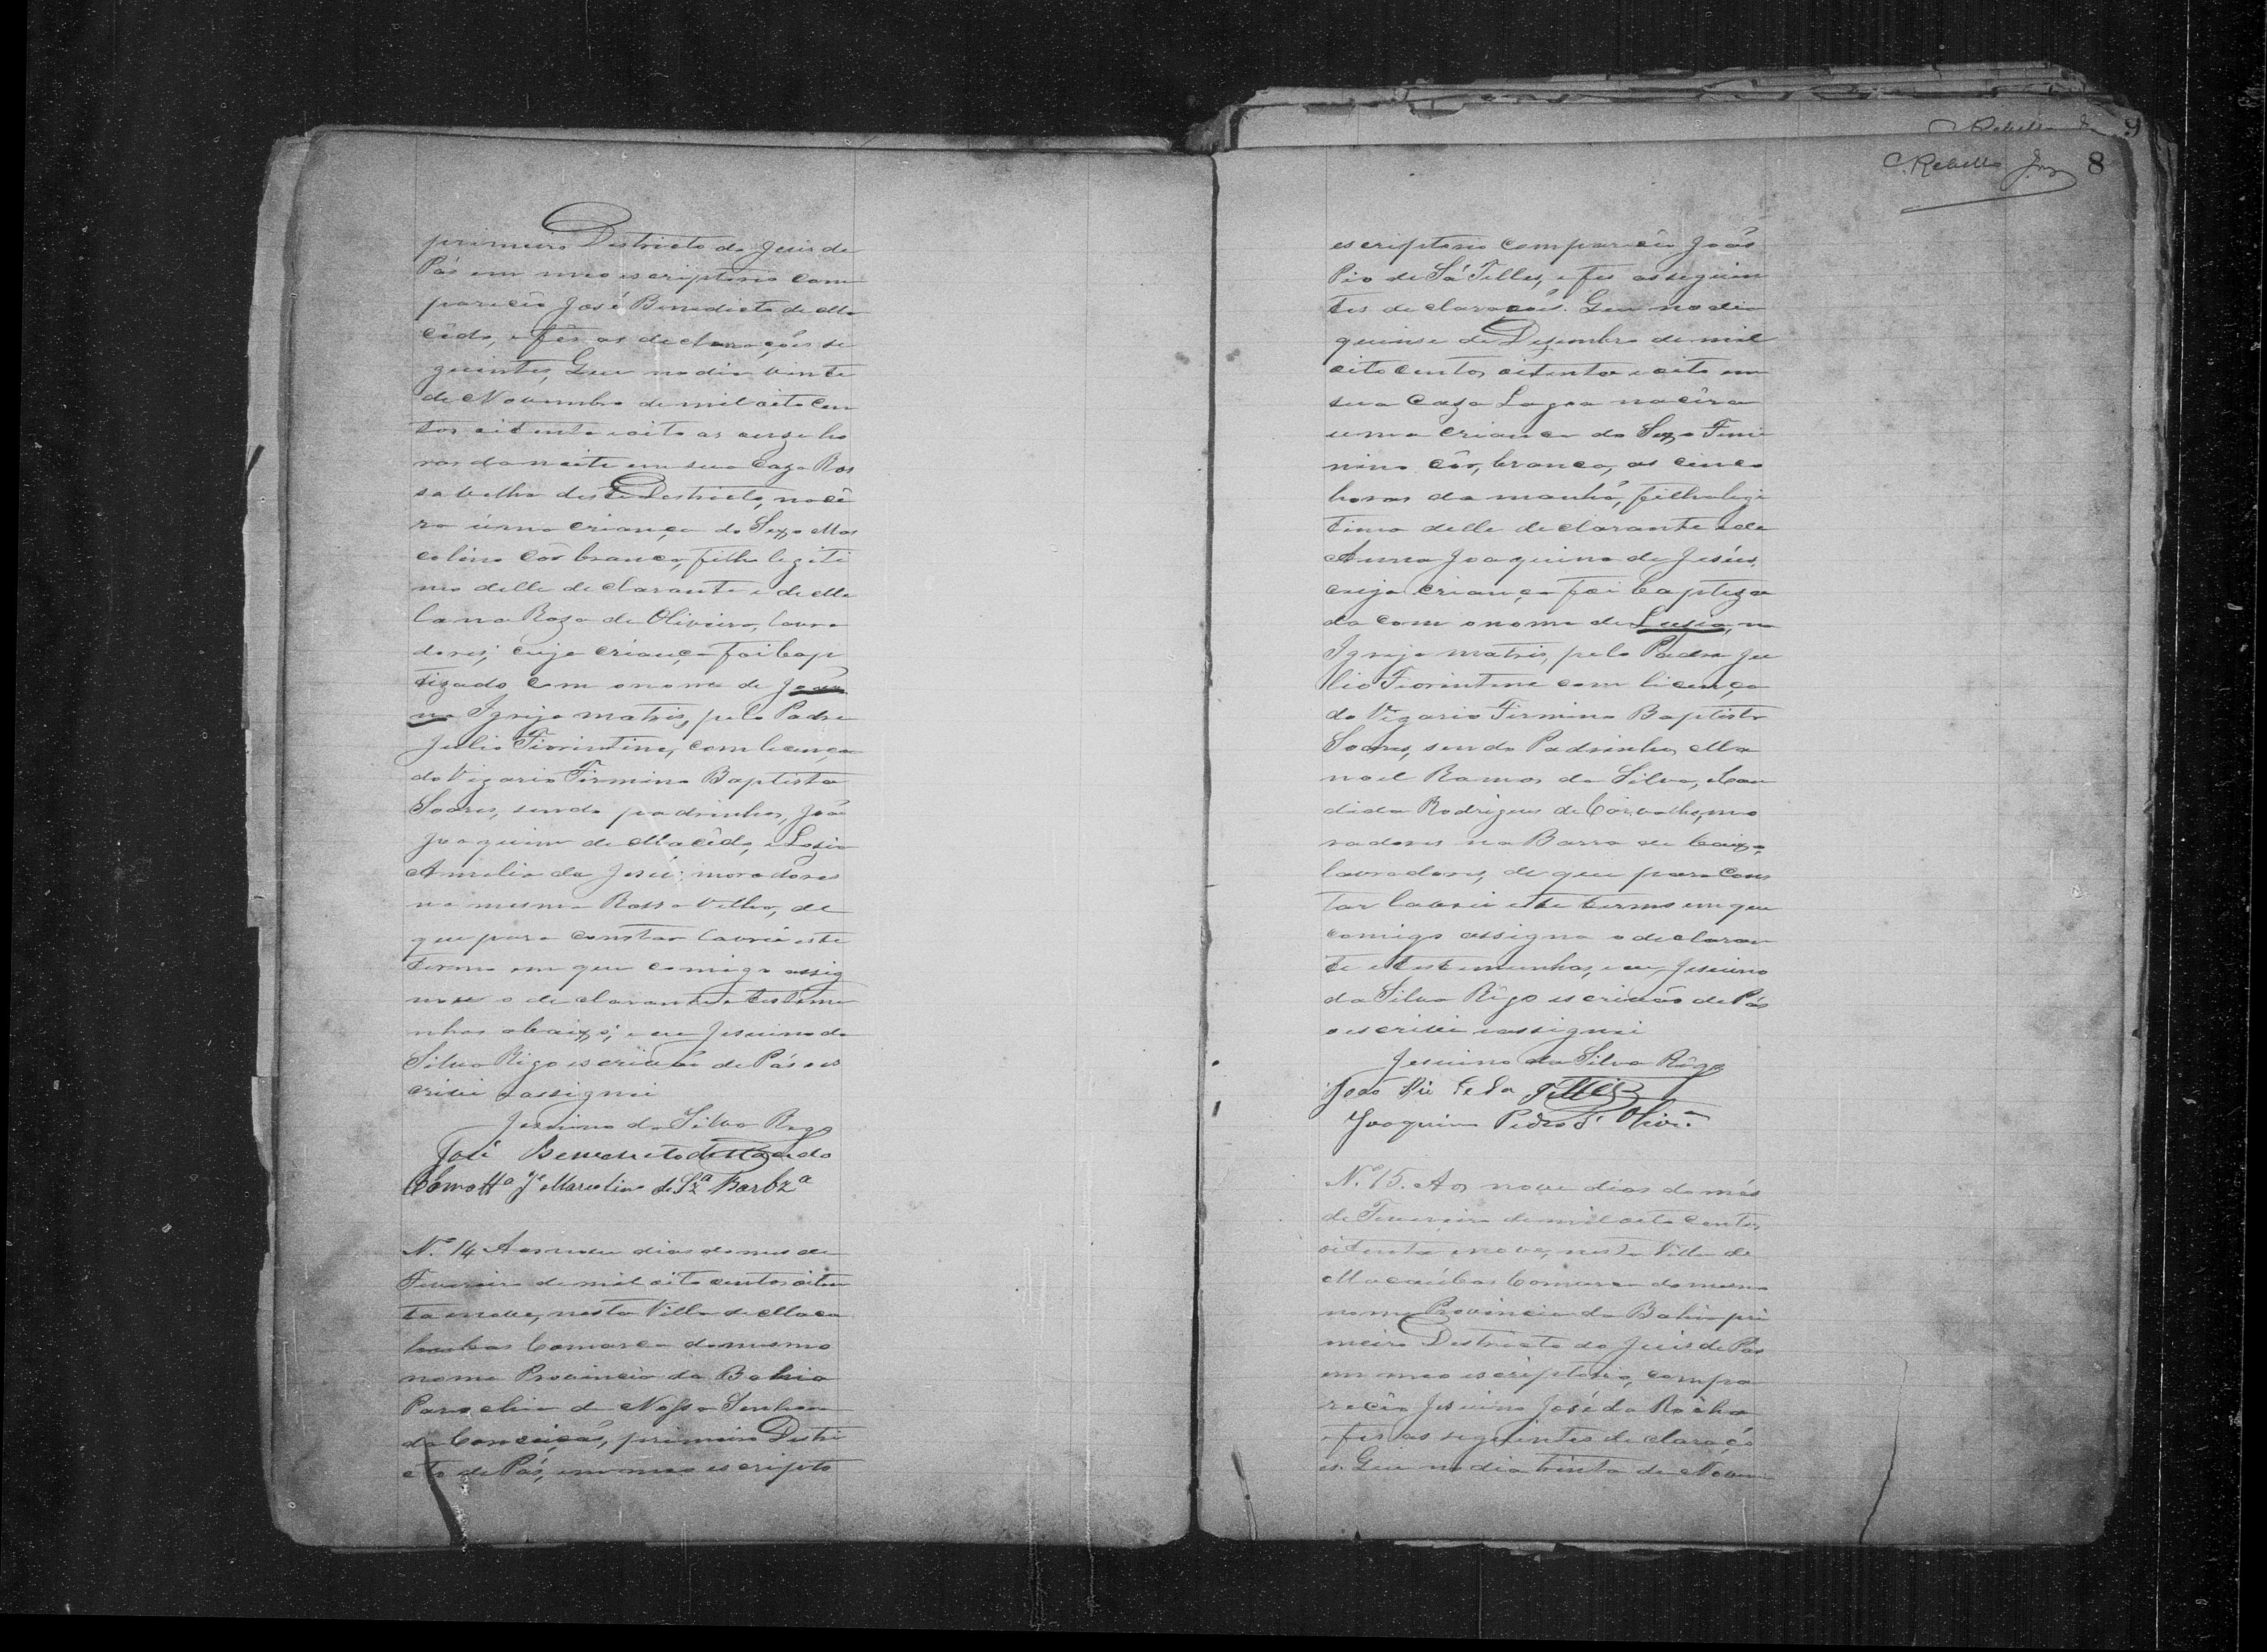 primeiro Districto do Juis de
Pás em meo escriptorio com
pareceo José Benedicto de Ma
cêdo, e fes as declarações se
guintes, Que no dia vinte
de Novembro de mil oito cen
tos oitenta e oito as onze ho
ras da noite em sua caza Ros
sa velha deste Destricto, nacê
ra uma criança do Sexo Mas
colino côr branca, filho legiti
mo delle declarante e de Ma
Roza de Oliveira, lavra
dores; cuja criança foi bap
tizado com o nome de
na Igreja matris, pelo Padre
Julio Fiorintino, com licença
do Vigario Firmino Baptista
Soares, sendo padrinhos, João
Joaquim de Macêdo, e
Amelia de Jesús moradores
na mesma Rossa velha, de
que para constar lavrei este
termo em que comigo assig
nou o declarante e testemu
nhas abaixo; e eu Jesuino da
Silva Rego escrivão de Pás o es
crivi e assignei
Jesuino da Silva Rego
José Benedicto de Macedo
Marcolino de Sz.ª Barbz.ª
Nº 14 Aos nove dias do mes de
Fevereiro de mil oito centos oiten
ta e nove, nesta Villa de Maca
hubas Comarca do mesmo
nome Provincia da Bahia
Parochia de Nossa Senhora
da Conceição, primeiro Destri
cto de Pás, em meo escripto
C. Rebello 9
C. Rebello Jor 8
escriptorio compareceo João
Pio de Sá Telles, e fes as seguin
tes declarações. Que no dia
quinse de Dezembro de mil
oito centos oitenta e oito em
sua Caza Lagoa nacêra
uma criança do Sexo Femi
nino côr, branca, as cinco
horas da manhã, filha legi
tima delle declarante e de
Anna Joaquina de Jesús,
cuja criança foi baptiza
da com o nome de Lusia, na
Igreja matris, pelo Padre Ju
lio Fiorintine com licença
do Vigario Firmino Baptista
Soares, sendo Padrinhos, Ma
noel Ramos da Silva, e Can
dida Rodrigues de Carvalho, mo
radores na Barra de
lavradores, de que para Cons
tar lavrei este termo em que
comigo assigna o declaran
te e testemunhas, e eu Jesuino
da Silva Rêgo escrivão de Pás
o escrivi e assignei
Jesuino da Silva Rêgo
João Pio de Sa Telles
Joaquim Pedro d' Olivr.ª
Nº. 15. Aos nove dias do mês
de Fevereiro de mil oito centos
oitenta e nove, nesta Villa de
Macaúbas Comarca do mesmo
nome Provincia da Bahia pri
meiro Destricto do Juis de Pás
em meo escriptorio, compa
recêo Jesuino José da Rocha
e fes as seguintes declaraçõ
es. Que no dia trinta de Novem